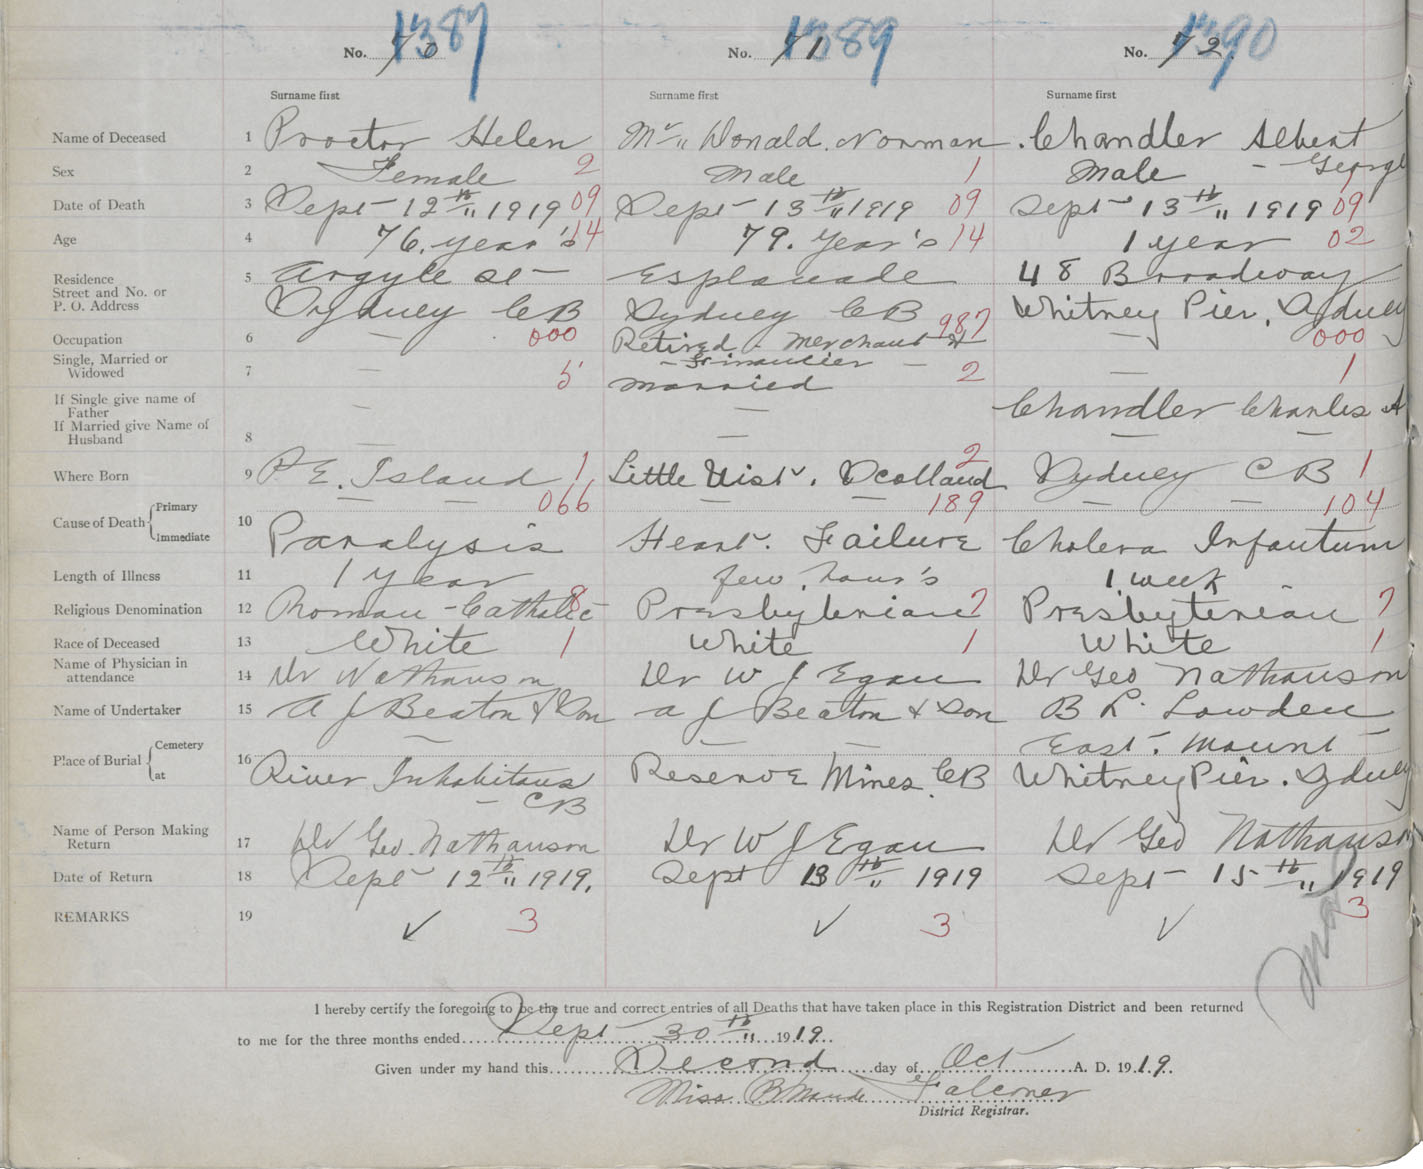 1387 1389 1390
No. 70 No. 71 No. 72.
Surname first Surname first Surname first
Name of Deceased 1 Proctor Helen Mc„ Donald. Norman. Chandler Albert
Sex 2 Female 2 Male 1 Male - George 1
Date of Death 3 Sept 12th„ 1919 09 Sept 13th„ 1919 09 Sept 13th„ 1919 09
Age 4 76. year's 14 79. Year's 14 1 year 02
Residence 5 Argyle St Esplanade 48 Broadway
Street and No. or
P. O. Address Sydney CB Sydney CB 987 Whitney Pier, Sydney
Occupation 6 — 000 Retired - Merchant & — 000
- Financier -
Single, Married or
Widowed 7 — 5 Married 2 — 1
If Single give name of
Father — — Chandler Charles A
If Married give Name of
Husband 8 — — — —
Where Born 9 P E. Island 1 Little Uist. Scotland 2 Sydney C B 1
Cause of Death Primary — — 066 — — 189 — — 104
Immediate 10 Paralysis Heart. Failure Cholera Infantum
Length of Illness 11 1 Year few hour's 1 week
Religious Denomination 12 Roman-Catholic 8 Presbyterian 7 Presbyterian 7
Race of Deceased 13 White 1 White 1 White 1
Name of Physician in
attendance 14 Dr Nathanson Dr W J Egan Dr Geo Nathanson
Name of Undertaker 15 A J Beaton & Son A J Beaton & Son B L. Lowden
Place of Burial Cemetery 16 — — — East. Mount
at River Inhabitans Reserve Mines. CB Whitney Pier. Sydney
- CB
Name of Person Making
Return 17 Dr Geo. Nathanson Dr W J Egan Dr Geo Nathanson
Date of Return 18 Sept 12th„ 1919. Sept 13th„ 1919 Sept 15th„ 1919
REMARKS 19 ✓ 3 ✓ 3 ✓ 3
I hereby certify the foregoing to be the true and correct entries of all Deaths that have taken place in this Registration District and been returned
to me for the three months ended Sept 30th„ 1919.
Given under my hand this Second day of Oct A. D. 1919.
Miss B Maude Falconer
District Registrar.